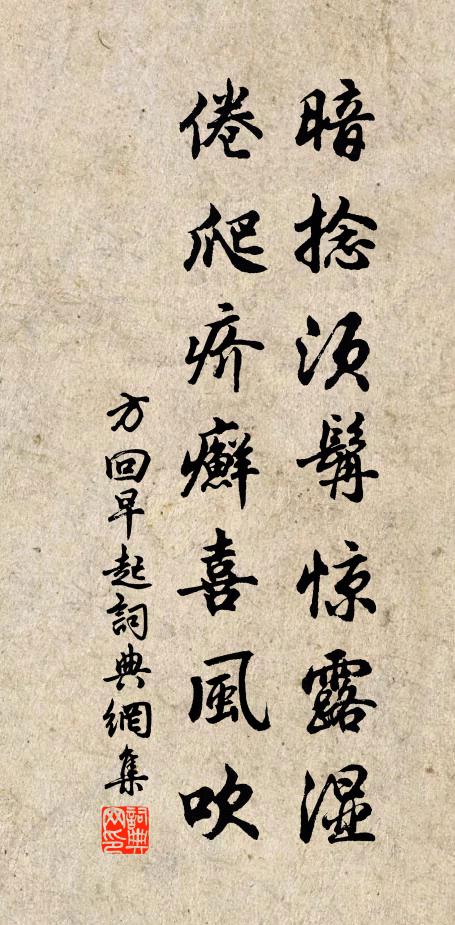 暗捻须髯惊露湿
倦爬疥癬喜風吹
方回早起詞典網集
詞典网印